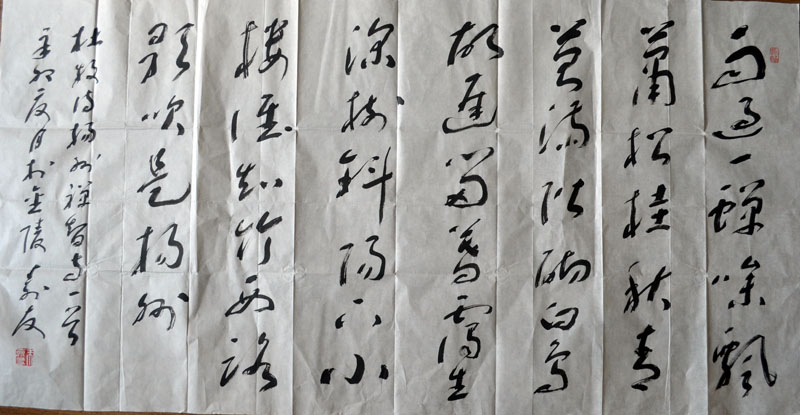 雨過一蟬噪飄
蕭松桂秋青
苔滿階砌白鳥
故遲留暮靄生
深樹斜陽下小
樓誰知竹西路
歌吹是揚州
杜牧詩揚州禪智寺一首
辛卯夏月於金陵